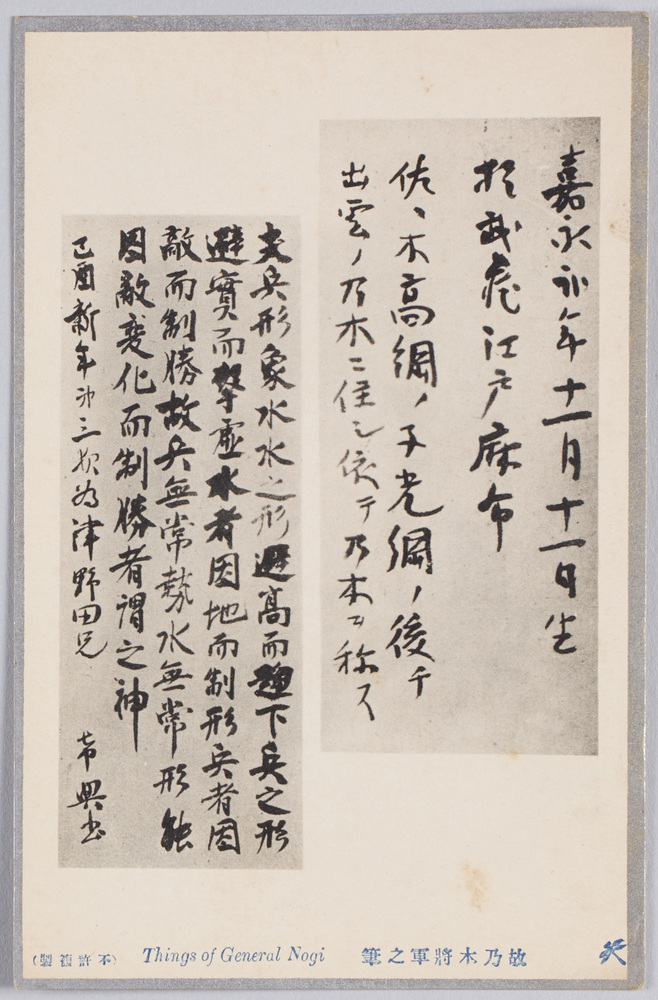 嘉永二年十一月十一日生
於武蔵江戸麻布
佐々木高綱ノ子光綱ノ後チ
出雲ノ乃木ニ住シ依テ乃木ヲ称ス
夫兵形象水水之形避高而趨下兵之形
避實而擊虛水者因地而制形兵者因
敵而制勝故兵無常勢水無常形能
因敵変化而制勝者謂之神
己酉新年 三 為津野田兄
希典書
故乃木將軍之筆
Things of General Nogi
(不許複製)